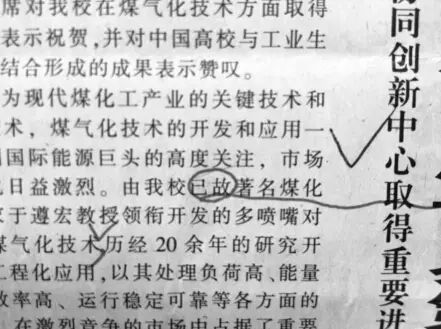 席对我校在煤气化技术方面取得
表示祝贺,并对中国高校与工业生
结合形成的成果表示赞叹。
为现代煤化工产业的关键技术和
术，煤气化技术的开发和应用一
国际能源巨头的高度关注，市场
日益激烈。由我校已故著名煤化
于遵宏教授领衔开发的多喷嘴对
煤气化技术历经 20 余年的研究开
工程化应用,以其处理负荷高、能量
效率高、运行稳定可靠等各方面的
在激烈竞争的市场中占据了重要
同创新中心取得重要进